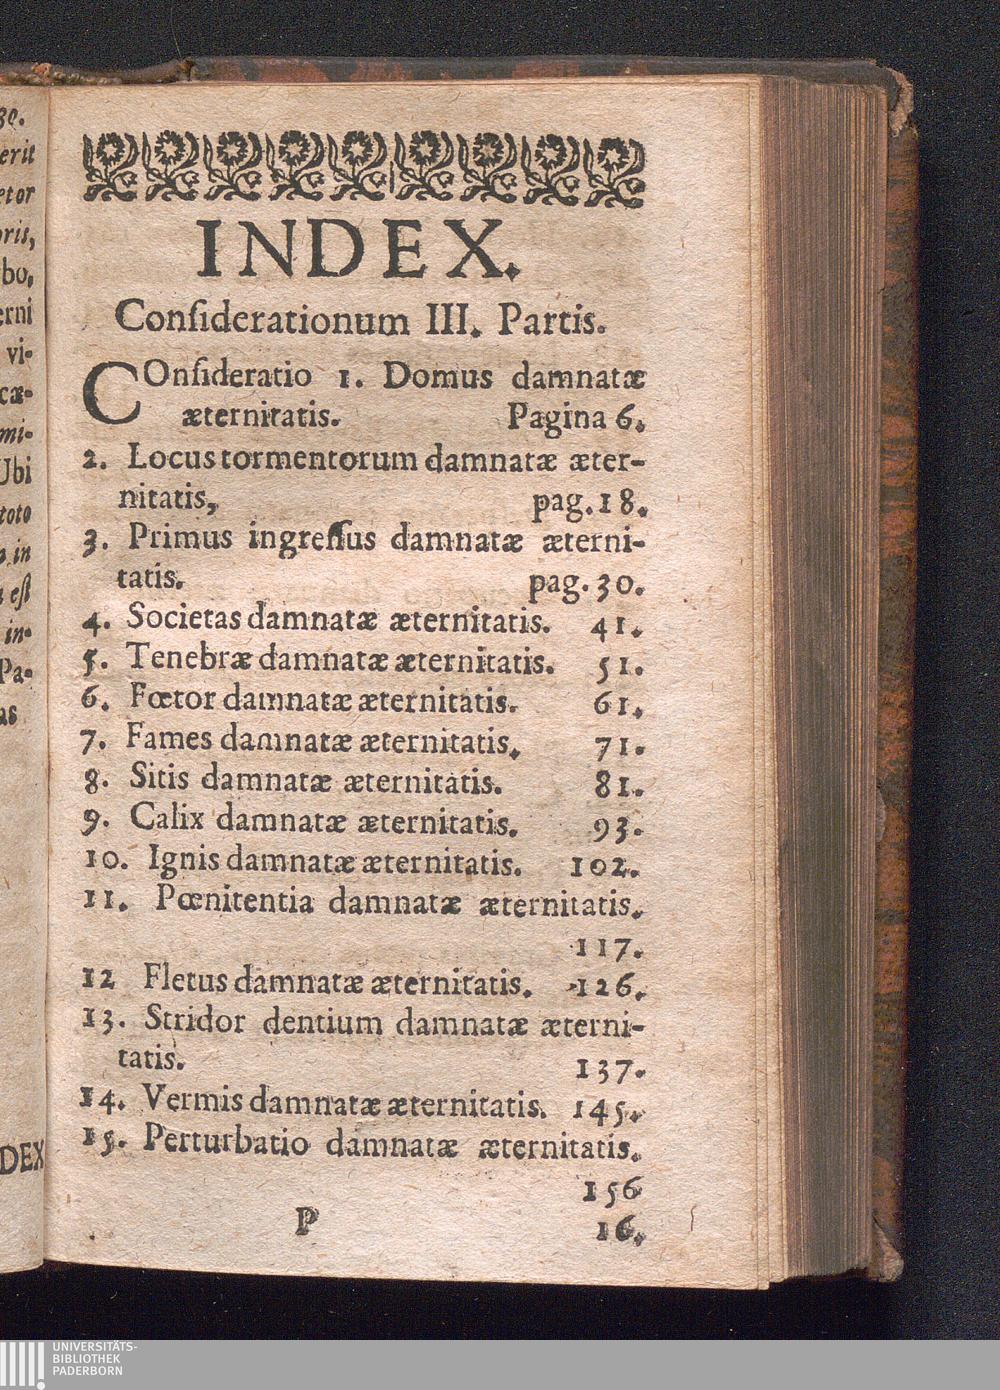 INDEX.
Conſiderationum III. Partis.
COnſideratio 1. Domus damnatæ
æternitatis. Pagina 6.
2. Locus tormentorum damnatæ æter-
nitatis, pag. 18.
3. Primus ingreſſus damnatæ æterni-
tatis. pag. 30.
4. Societas damnatæ æternitatis. 41.
5. Tenebræ damnatæ æternitatis. 51.
6. Fœtor damnatæ æternitatis. 61.
7. Fames damnatæ æternitatis. 71.
8. Sitis damnatæ æternitatis. 81.
9. Calix damnatæ æternitatis. 93.
10. Ignis damnatæ æternitatis. 102.
11. Pœnitentia damnatæ æternitatis.
117.
12 Fletus damnatæ æternitatis. 126.
13. Stridor dentium damnatæ æterni-
tatis. 137.
14. Vermis damnatæ æternitatis. 145.
15. Perturbatio damnatæ æternitatis.
156
P 16.
UNIVERSITÄTS-
BIBLIOTHEK
PADERBORN